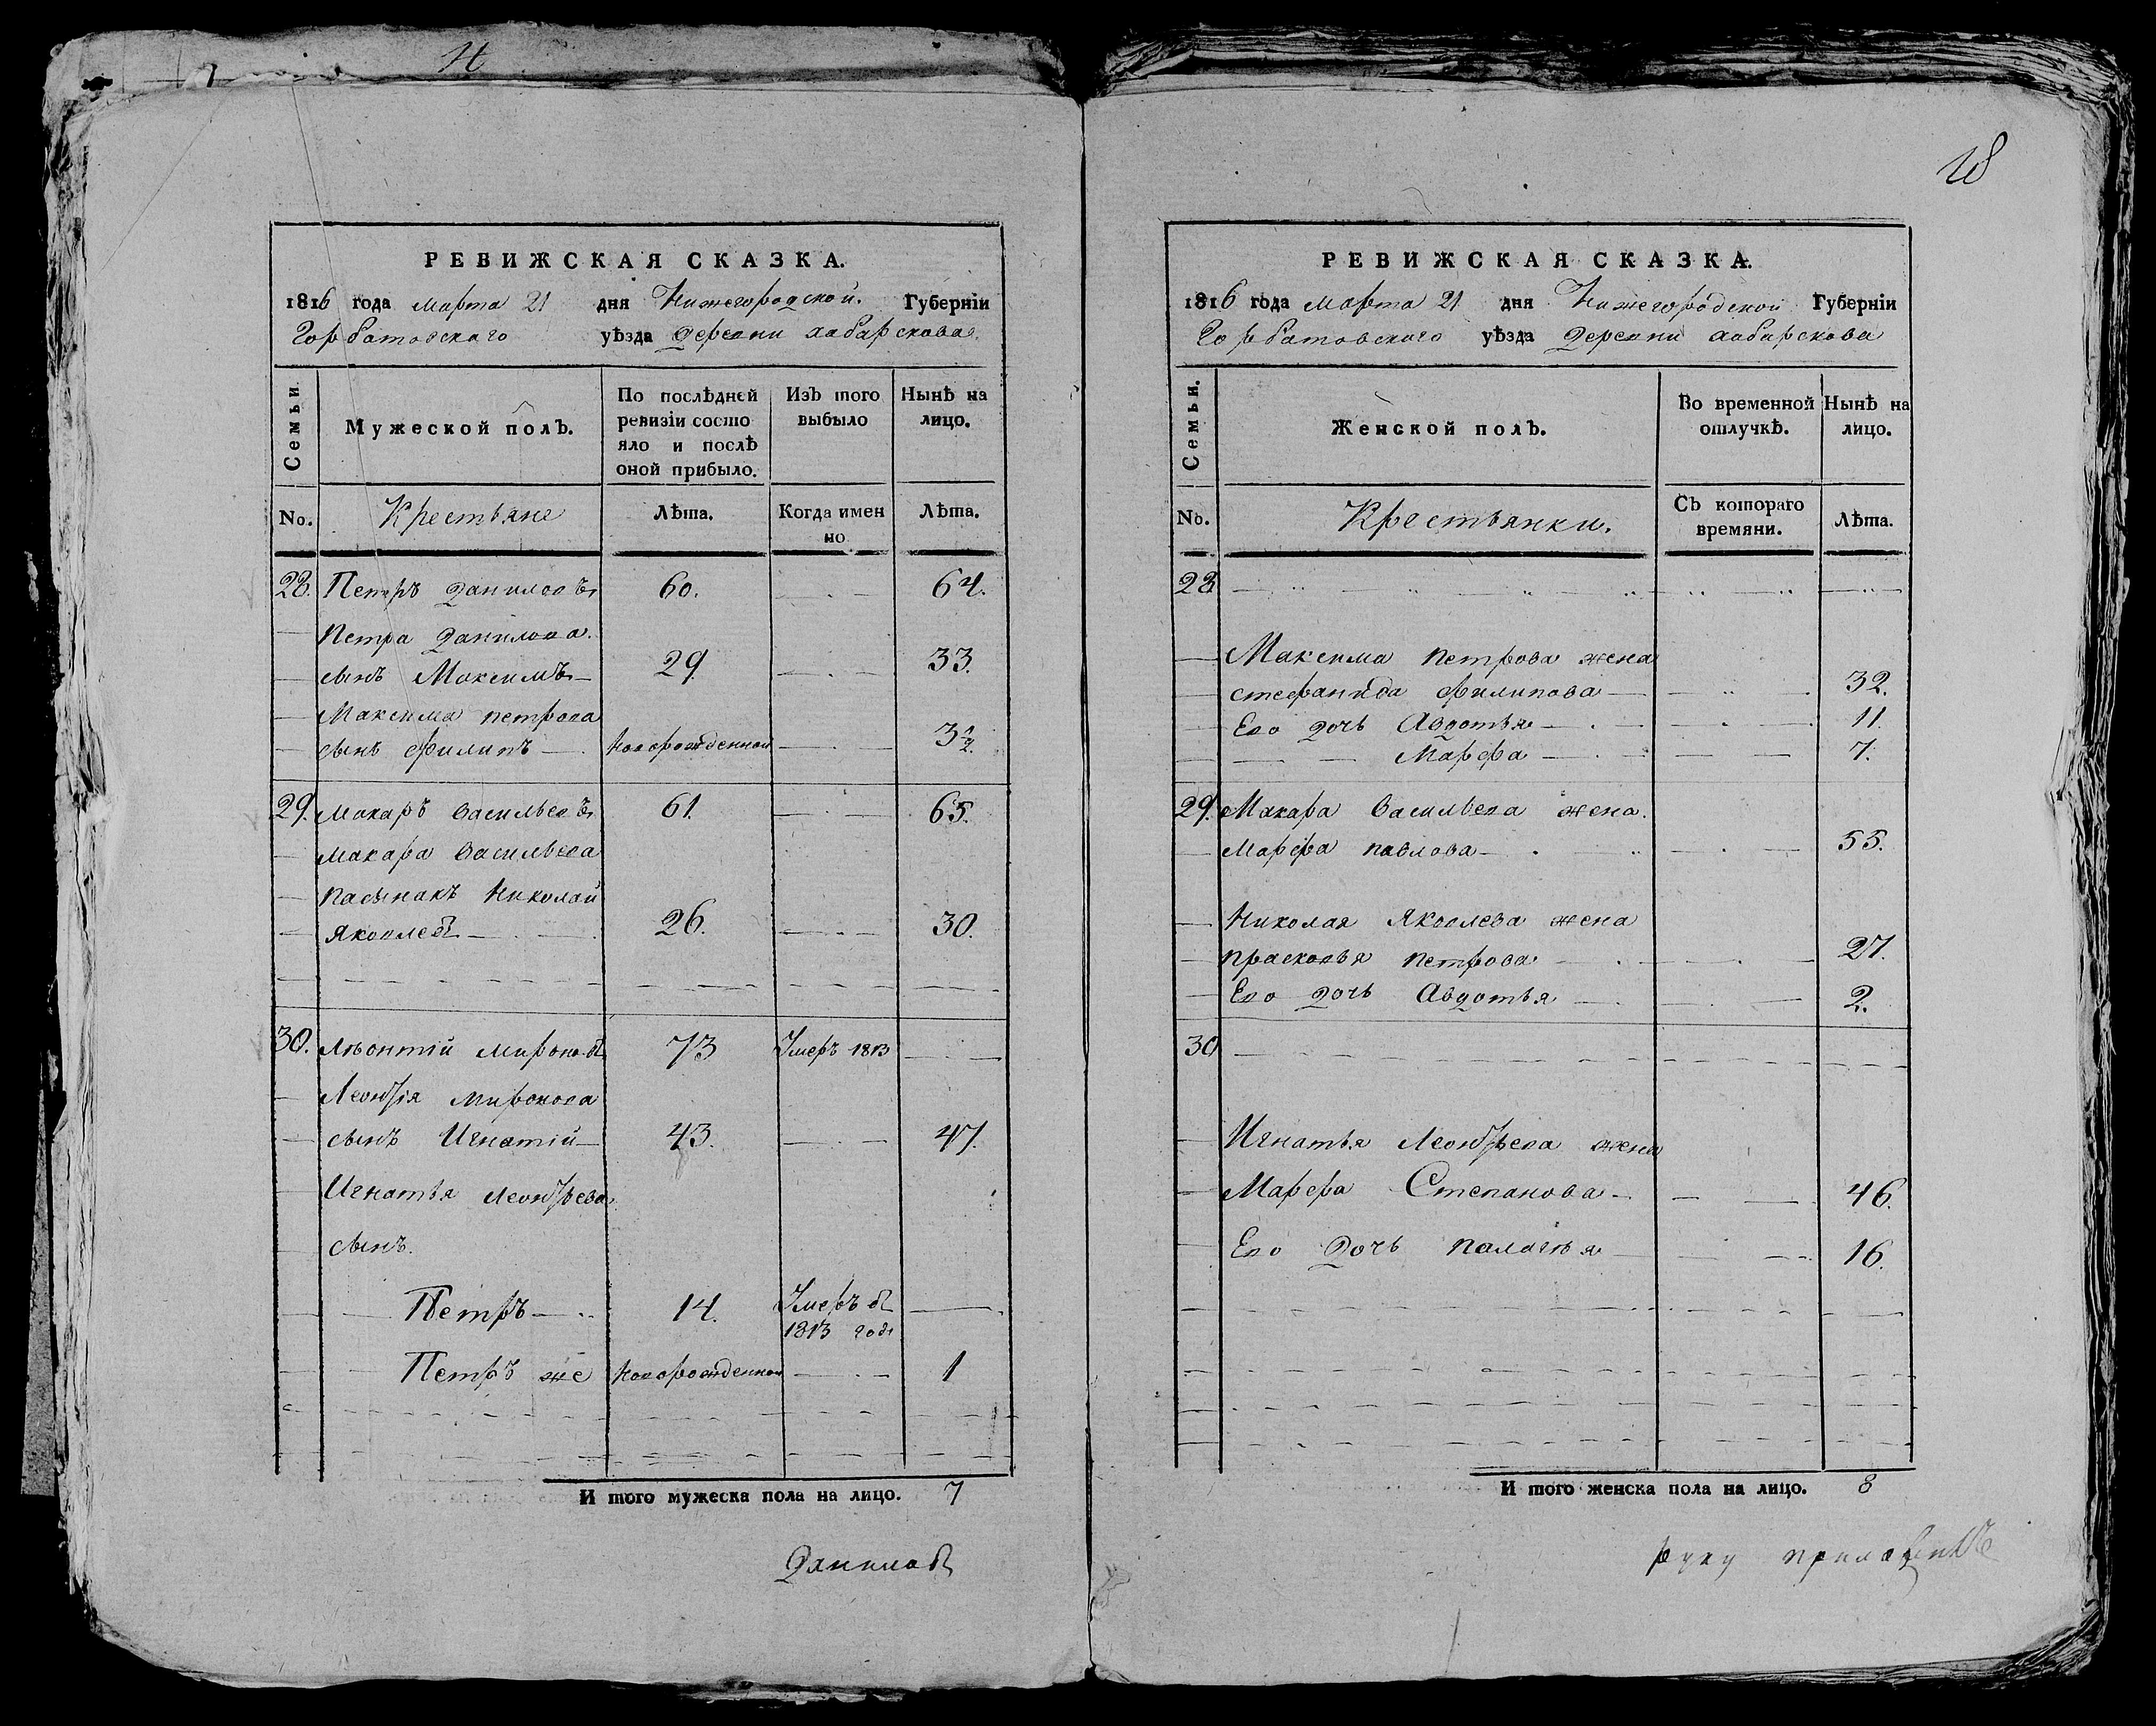 РЕВИЖСКАЯ СКАЗКА.
1816 года марта 21 дня Нижегородской. Губернїи
Горбатовского уѣзда деревни хабарскова
Семьи.
Мужеской полъ.
По послѣдней
ревизїи состо
яло и послѣ
оной прибыло.
Изъ того
выбыло
Нынѣ на
лицо.
No.
Крестьяне
Лѣта.
Когда имен
но
Лѣта.
28. Петръ Даниловъ 60. 64.
Петра Данилова
сынъ Максимъ 29. 33.
Максима петрова
сынъ Филипъ Новорожденной 3½
29. Макаръ Васильевъ 61. 65.
Макара Васильева
пасынакъ Николай
Яковлевъ 26. 30.
30. Лѣонтїй Мироновъ 73 Умеръ 1813
Леонтїя Миронова
сынъ Игнатїй 43. 47.
Игнатья Леонтьева
сынъ.
Петръ 14. Умеръ в
1813 годе
Петръ же Новорожденной 1
И того мужеска пола на лицо. 7
Данилов
РЕВИЖСКАЯ СКАЗКА.
1816 года марта 21 дня Нижегородской Губернїи
Горбатовского уѣзда деревни хабарскова
Семьи.
Женской полъ.
Во временной
отлучкѣ.
Нынѣ на
лицо.
No.
Крестьянки.
Съ котораго
времяни.
Лѣта.
28
Максима петрова жена
стефанида Филипова 32.
Ево дочь Авдотья 11.
Марфа 7.
29. Макара Васильева жена.
Марфа павлова 55.
Николая Яковлева жена
прасковья петрова 27.
Ево дочь Авдотья 2.
30
Игнатья Леонтьева жена
Марфа Степанова 46.
Ево дочь палагѣя 16.
И того женска пола на лицо. 8
руку приложилъ